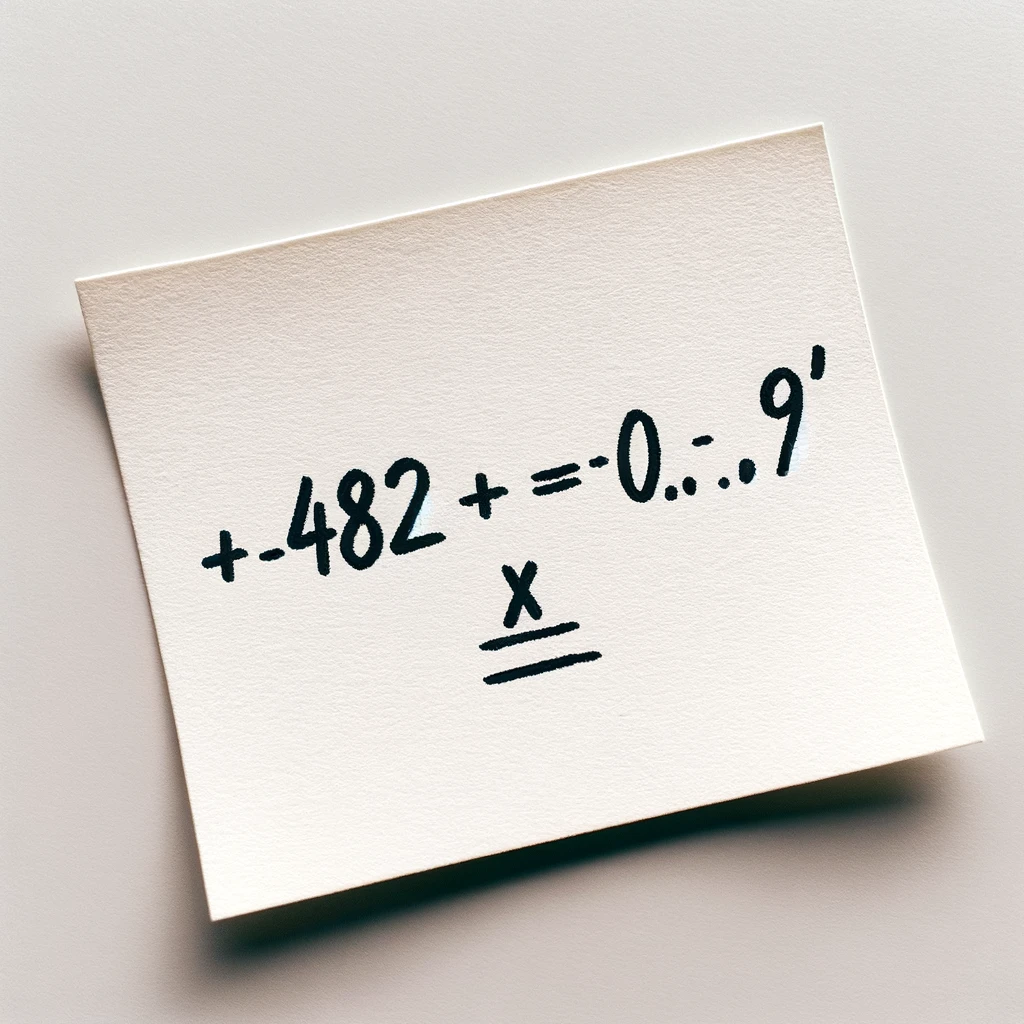 +-482 + =-0..-..9'
x